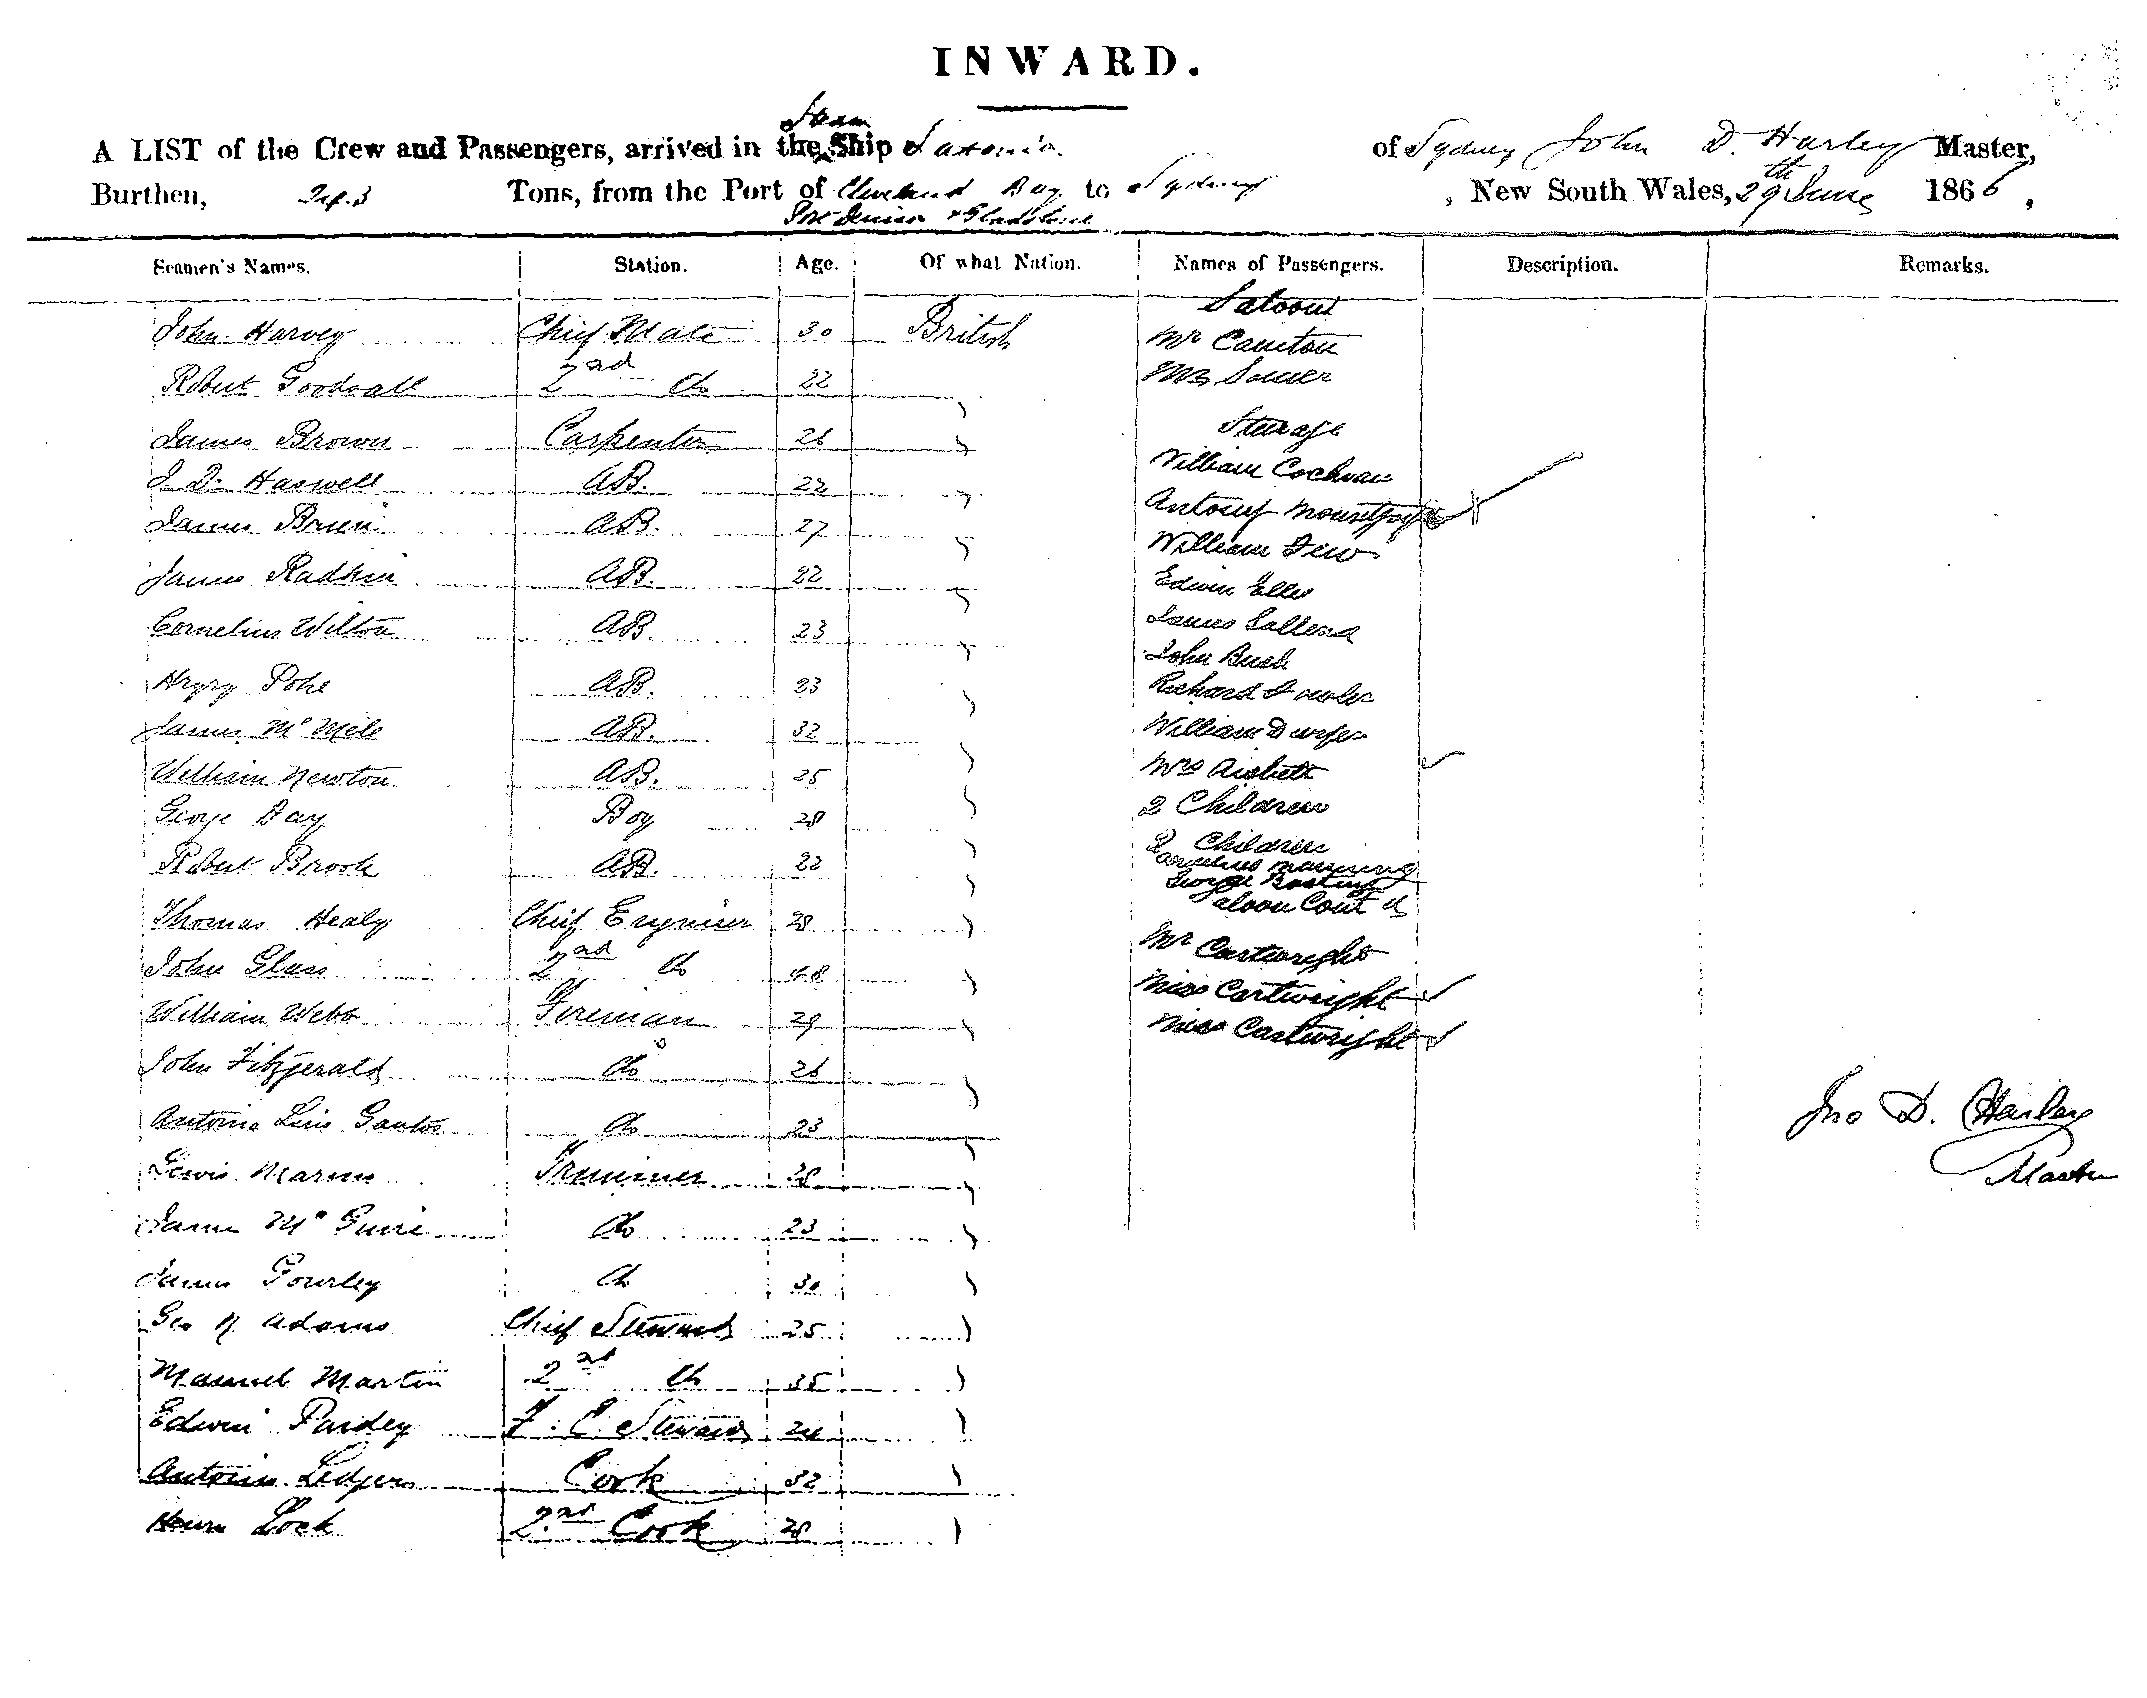 INWARD.
Steam
A LIST of the Crew and Passengers, arrived in the Ship Saxonia of Sydney John D. Harley Master,
Burthen, 243 Tons, from the Port of Cleveland Bay to Sydney, New South Wales, 29th June 1866,
Port Denison & Gladstone
Seamen's Names. Station. Age. Of what Nation. Names of Passengers. Description. Remarks.
Saloon
John Harvey Chief Mate 30 British Mr
Robert Goodvall 2nd do 22 Mrs
Steerage
James Brown Carpenter 26
William Cochran
J. D. Haswell AB. 22
Antony
James AB. 27
William
James AB. 22
Edwin Elles
Cornelius Wilton AB. 23
James
John Bush
Pohe AB. 23
Richard Fowler
James Mc AB. 32
William
William Newton AB. 25
Mrs
George Day Boy 28
2 Children
2 Children
Robert Brook AB. 22
Cornelius Manning
George
Saloon Cont d
Thomas Healy Chief Engineer 28
Mr Cartwright
John Glass 2nd do 48
Miss Cartwright
William Webb Fireman 29
Miss Cartwright
John Fitzgerald do 26
Jno D. Harley
Antonio Luis Santos do 23
Master
Lewis Trimmer 28
James Mc Guire do 23
James Gourley do 30
Geo Adams Chief Steward 25
Manuel Martin 2nd do 35
Edwin Pardey F. C. Steward 24
Ledger Cook 32
Lock 2nd Cook 28